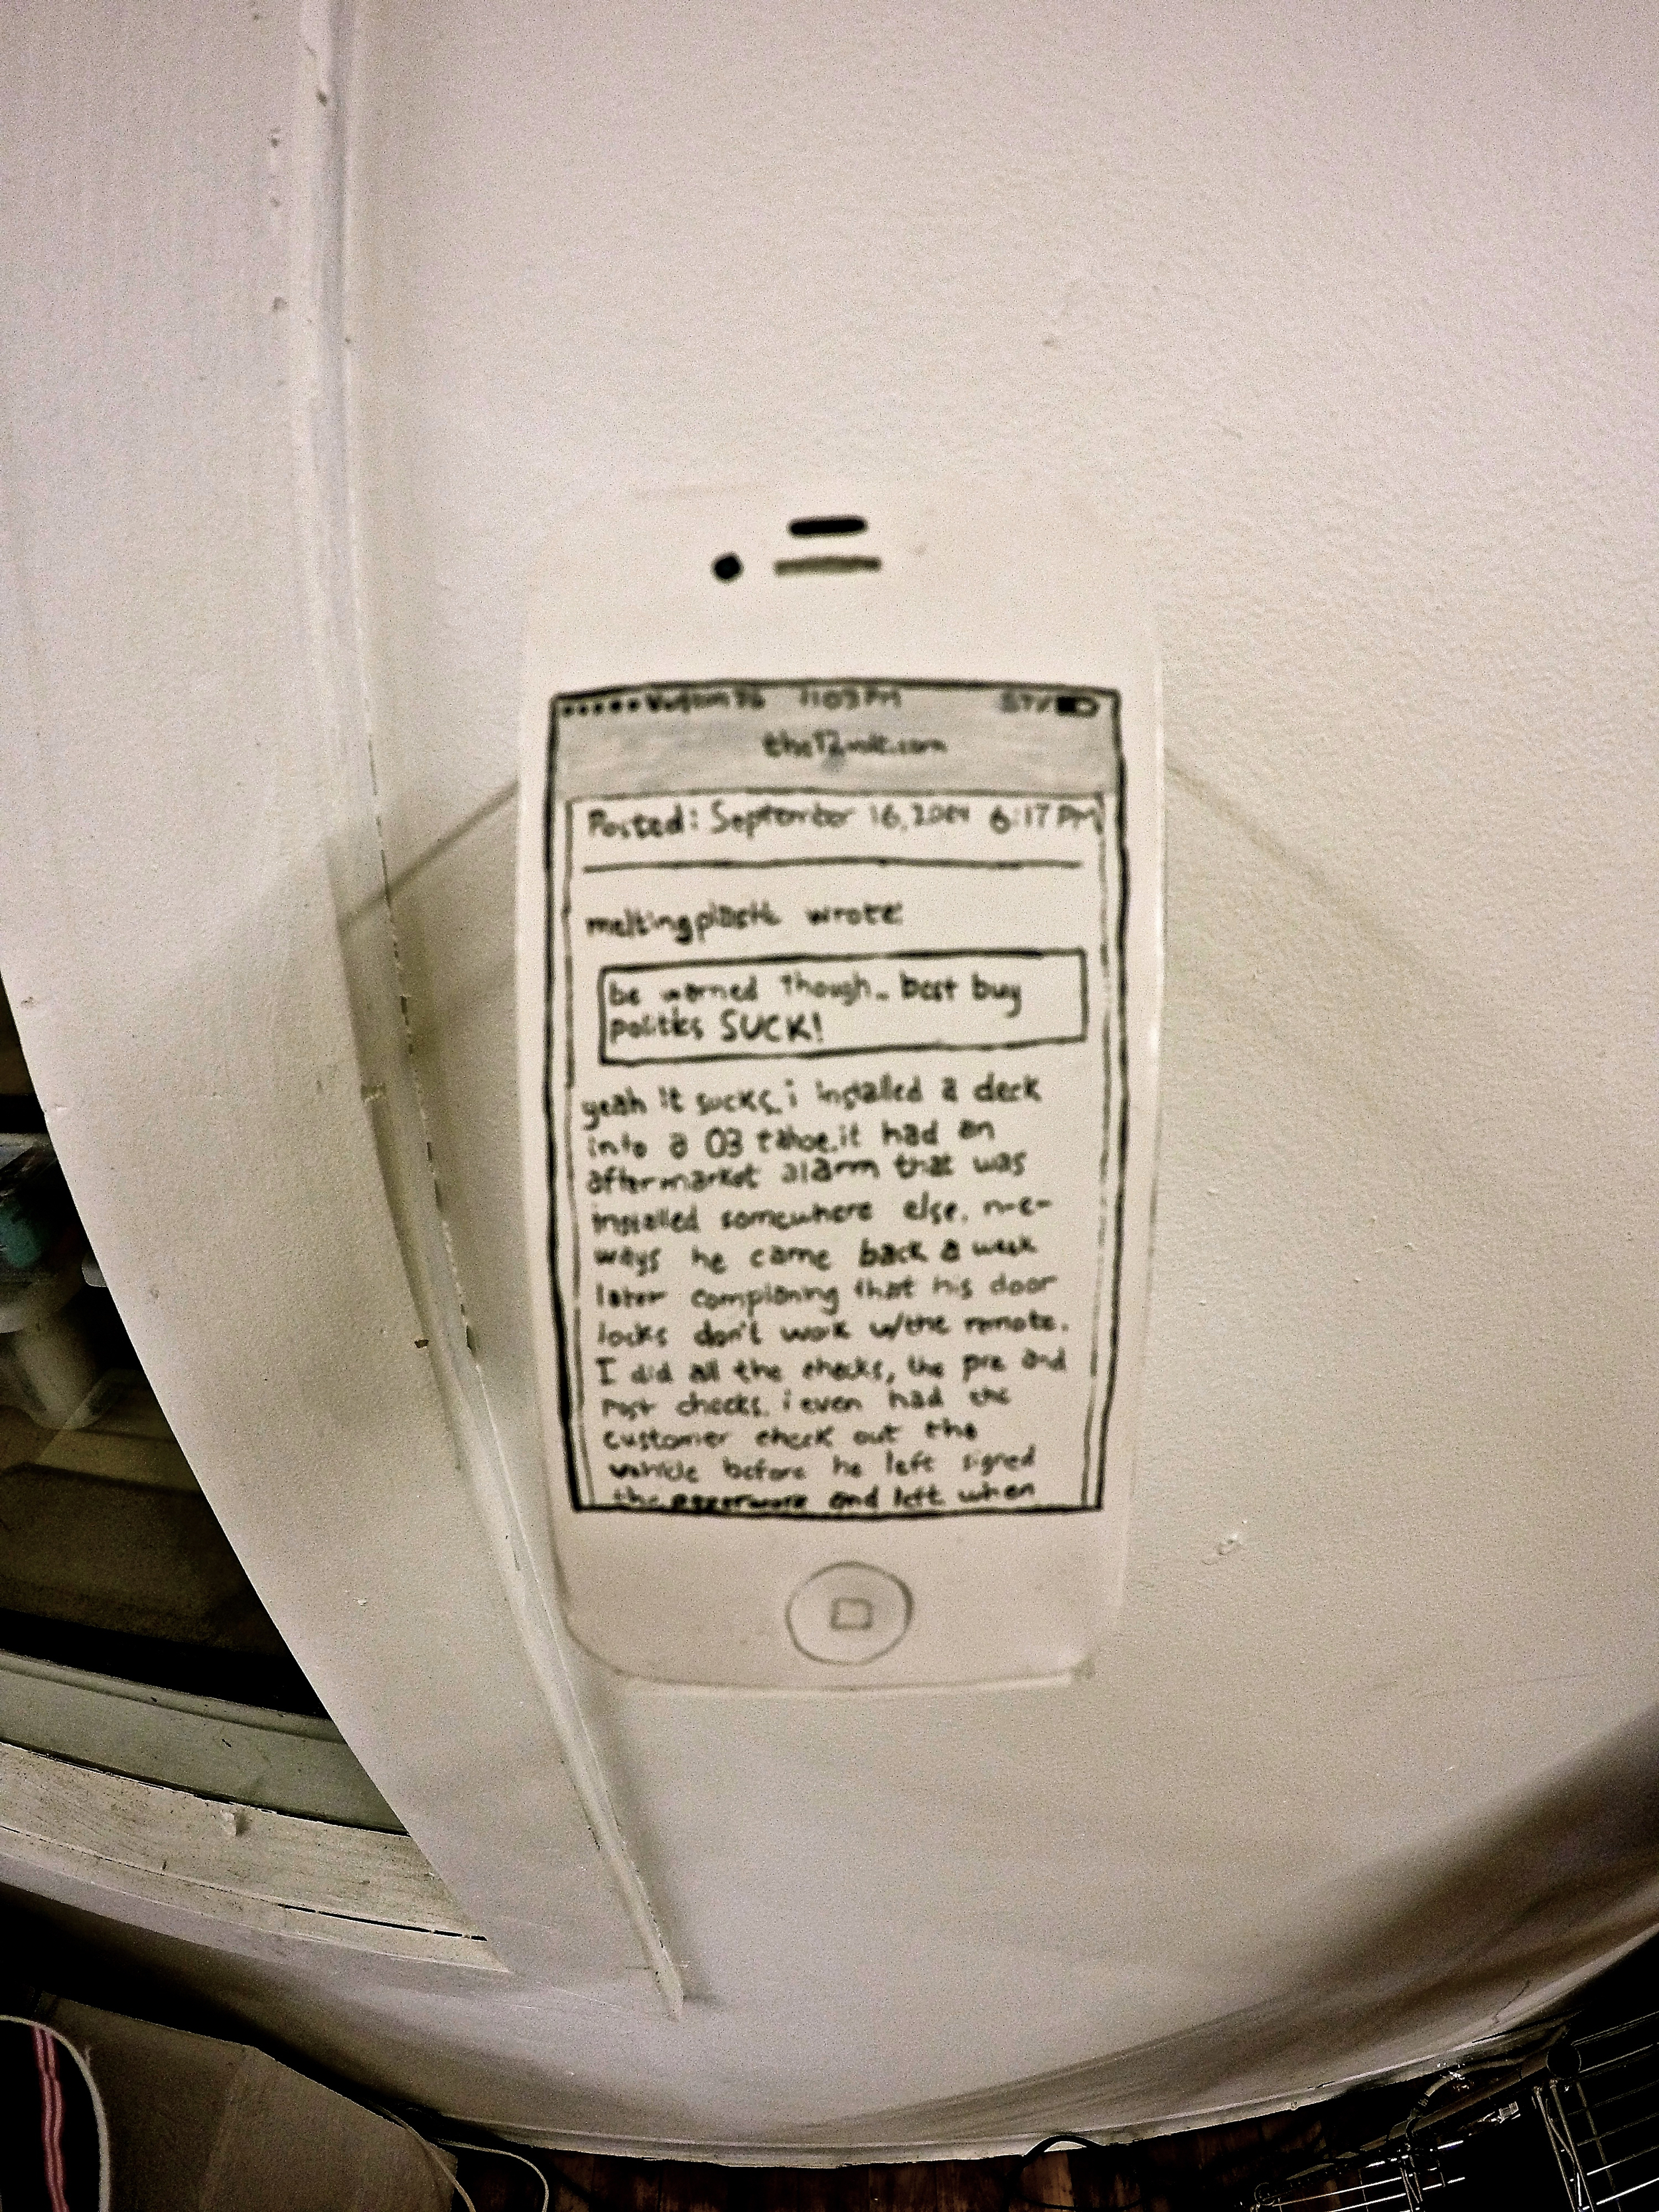 11:03 PM 57%
the12volt.com
Posted: September 16, 2004 6:17 PM
meltingplastic wrote:
be warned though.. best buy
politics SUCK!
yeah it sucks. i installed a deck
into a 03 tahoe. it had an
aftermarket alarm that was
installed somewhere else. n-e-
ways he came back a week
later complaning that his door
locks don't work w/the remote.
I did all the checks, the pre and
post checks. i even had the
customer check out the
vehicle before he left signed
the paperwork and left. when